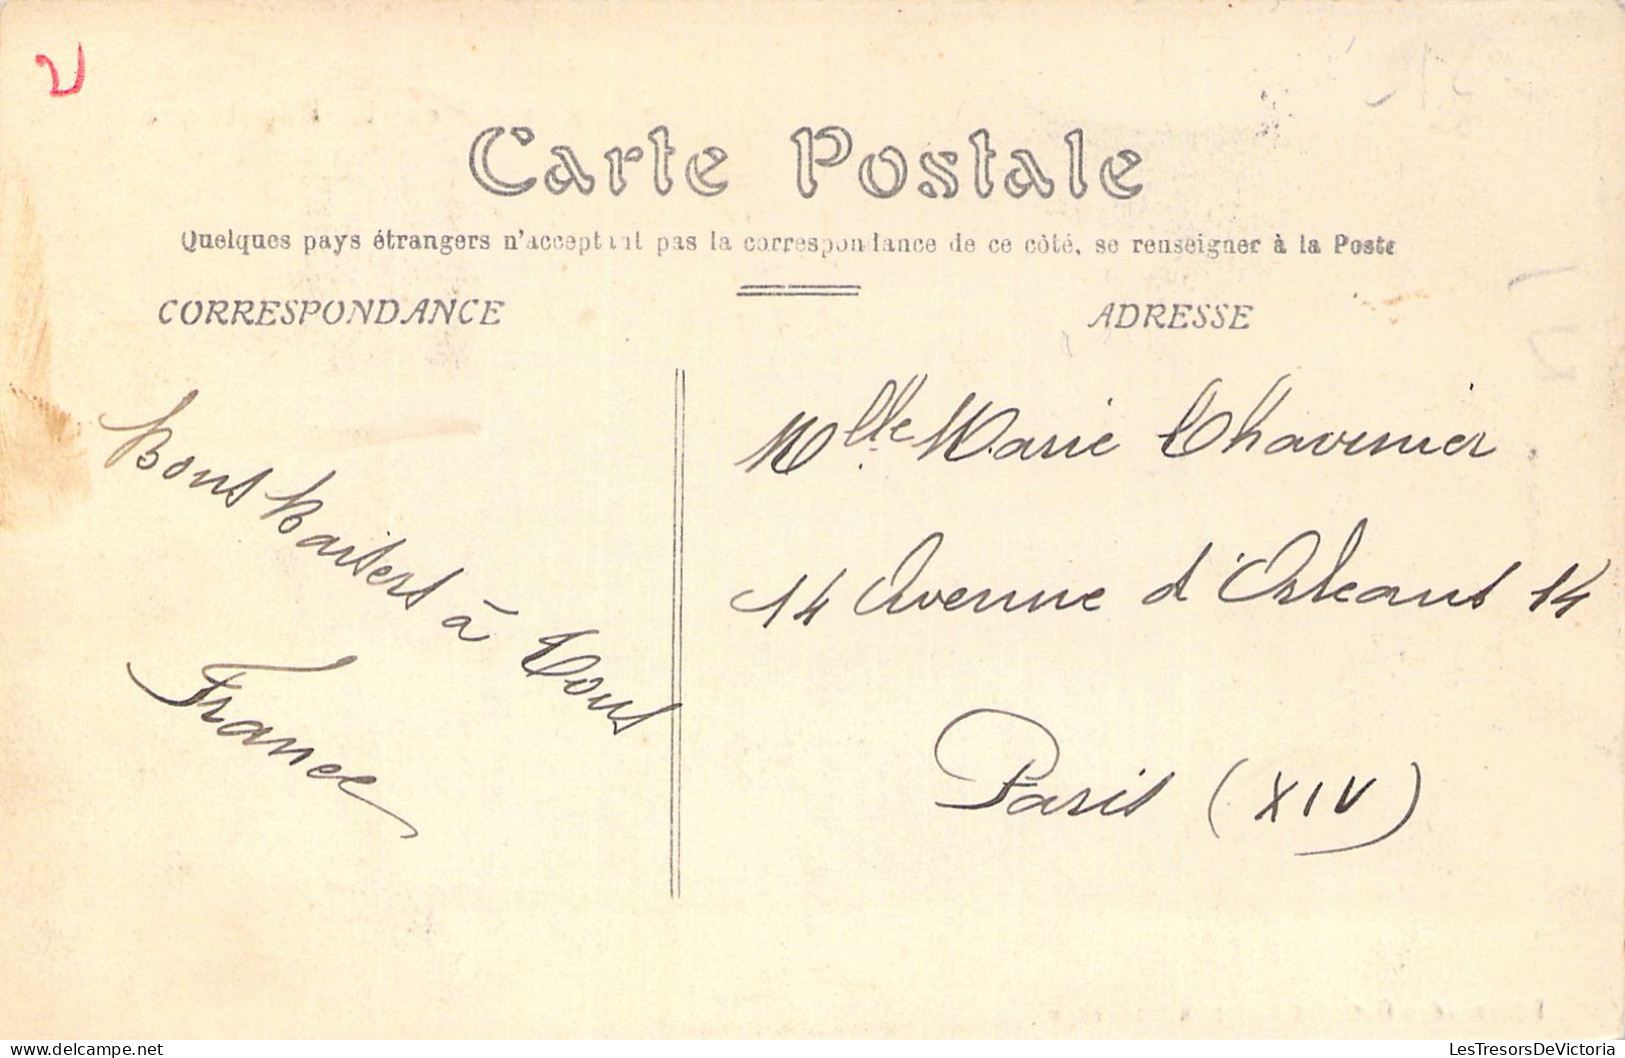 Carte Postale
Quelques pays étrangers n'acceptant pas la correspondance de ce côté, se renseigner à la Poste
CORRESPONDANCE
ADRESSE
Bons Baisers à tous
France
Mlle Marie Chavinier
14 Avenue d'Orleans 14
Paris (XIV)
LesTresorsDeVictoria